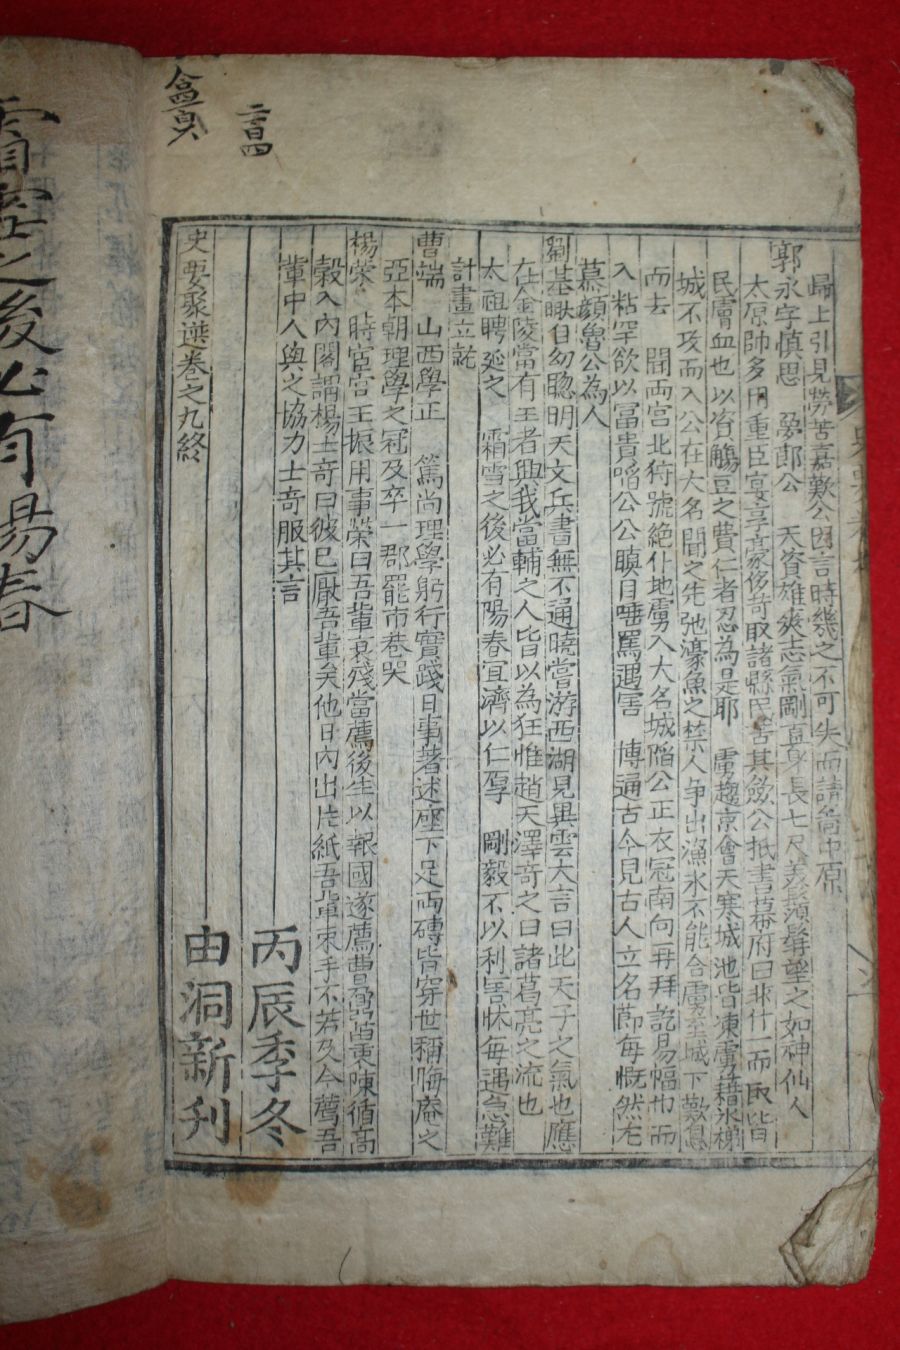 歸上引見勞苦嘉歎公因言時幾之不可失而請當中原
郭永字慎思 天資雄爽志氣剛直身長七尺美鬚髥望之如神仙人
太原帥多用重臣宴享豪侈苛取諸縣民苦其斂公抵書幕府曰非什一而取皆
民膏血也以資觴豆之費仁者忍為是耶 虜趨京會天寒城池皆凍虜藉氷梯
城不攻而入公在大名聞之先弛濠魚之禁人争出漁氷不能合虜至城下歎息
而去 聞兩宮北狩號絶仆地虜入大名城陷公正衣冠南向再拜訖易幅巾而
入粘罕欲以富貴啗公公瞋目唾罵遇害 博通古今見古人立名節每慨然尤
慕顔魯公為人
劉基 聰明天文兵書無不通曉嘗游西湖見異雲大言曰此天子之氣也應
在金陵當有王者興我當輔之人皆以為狂惟趙天澤奇之曰諸葛亮之流也
太祖聘延之 霜雪之後必有陽春宜濟以仁厚 剛毅不以利害怵每遇急難
計畫立就
曹端 山西學正 篤尚理學躬行實踐日事著述座下足両磚皆穿世稱晦庵之
亞本朝理學之冠及卒一郡罷市巷哭
楊榮 時宦官王振用事榮曰吾輩衰殘當薦後生以報國遂薦曹鼐苗衷陳循高
穀入內閣謂楊士奇曰彼已厭吾輩矣他日內出片紙吾軰束手不若及今薦吾
輩中人與之協力士奇服其言
丙辰季冬
由洞新刋
史要聚選卷之九終
霜雪之後必有陽春